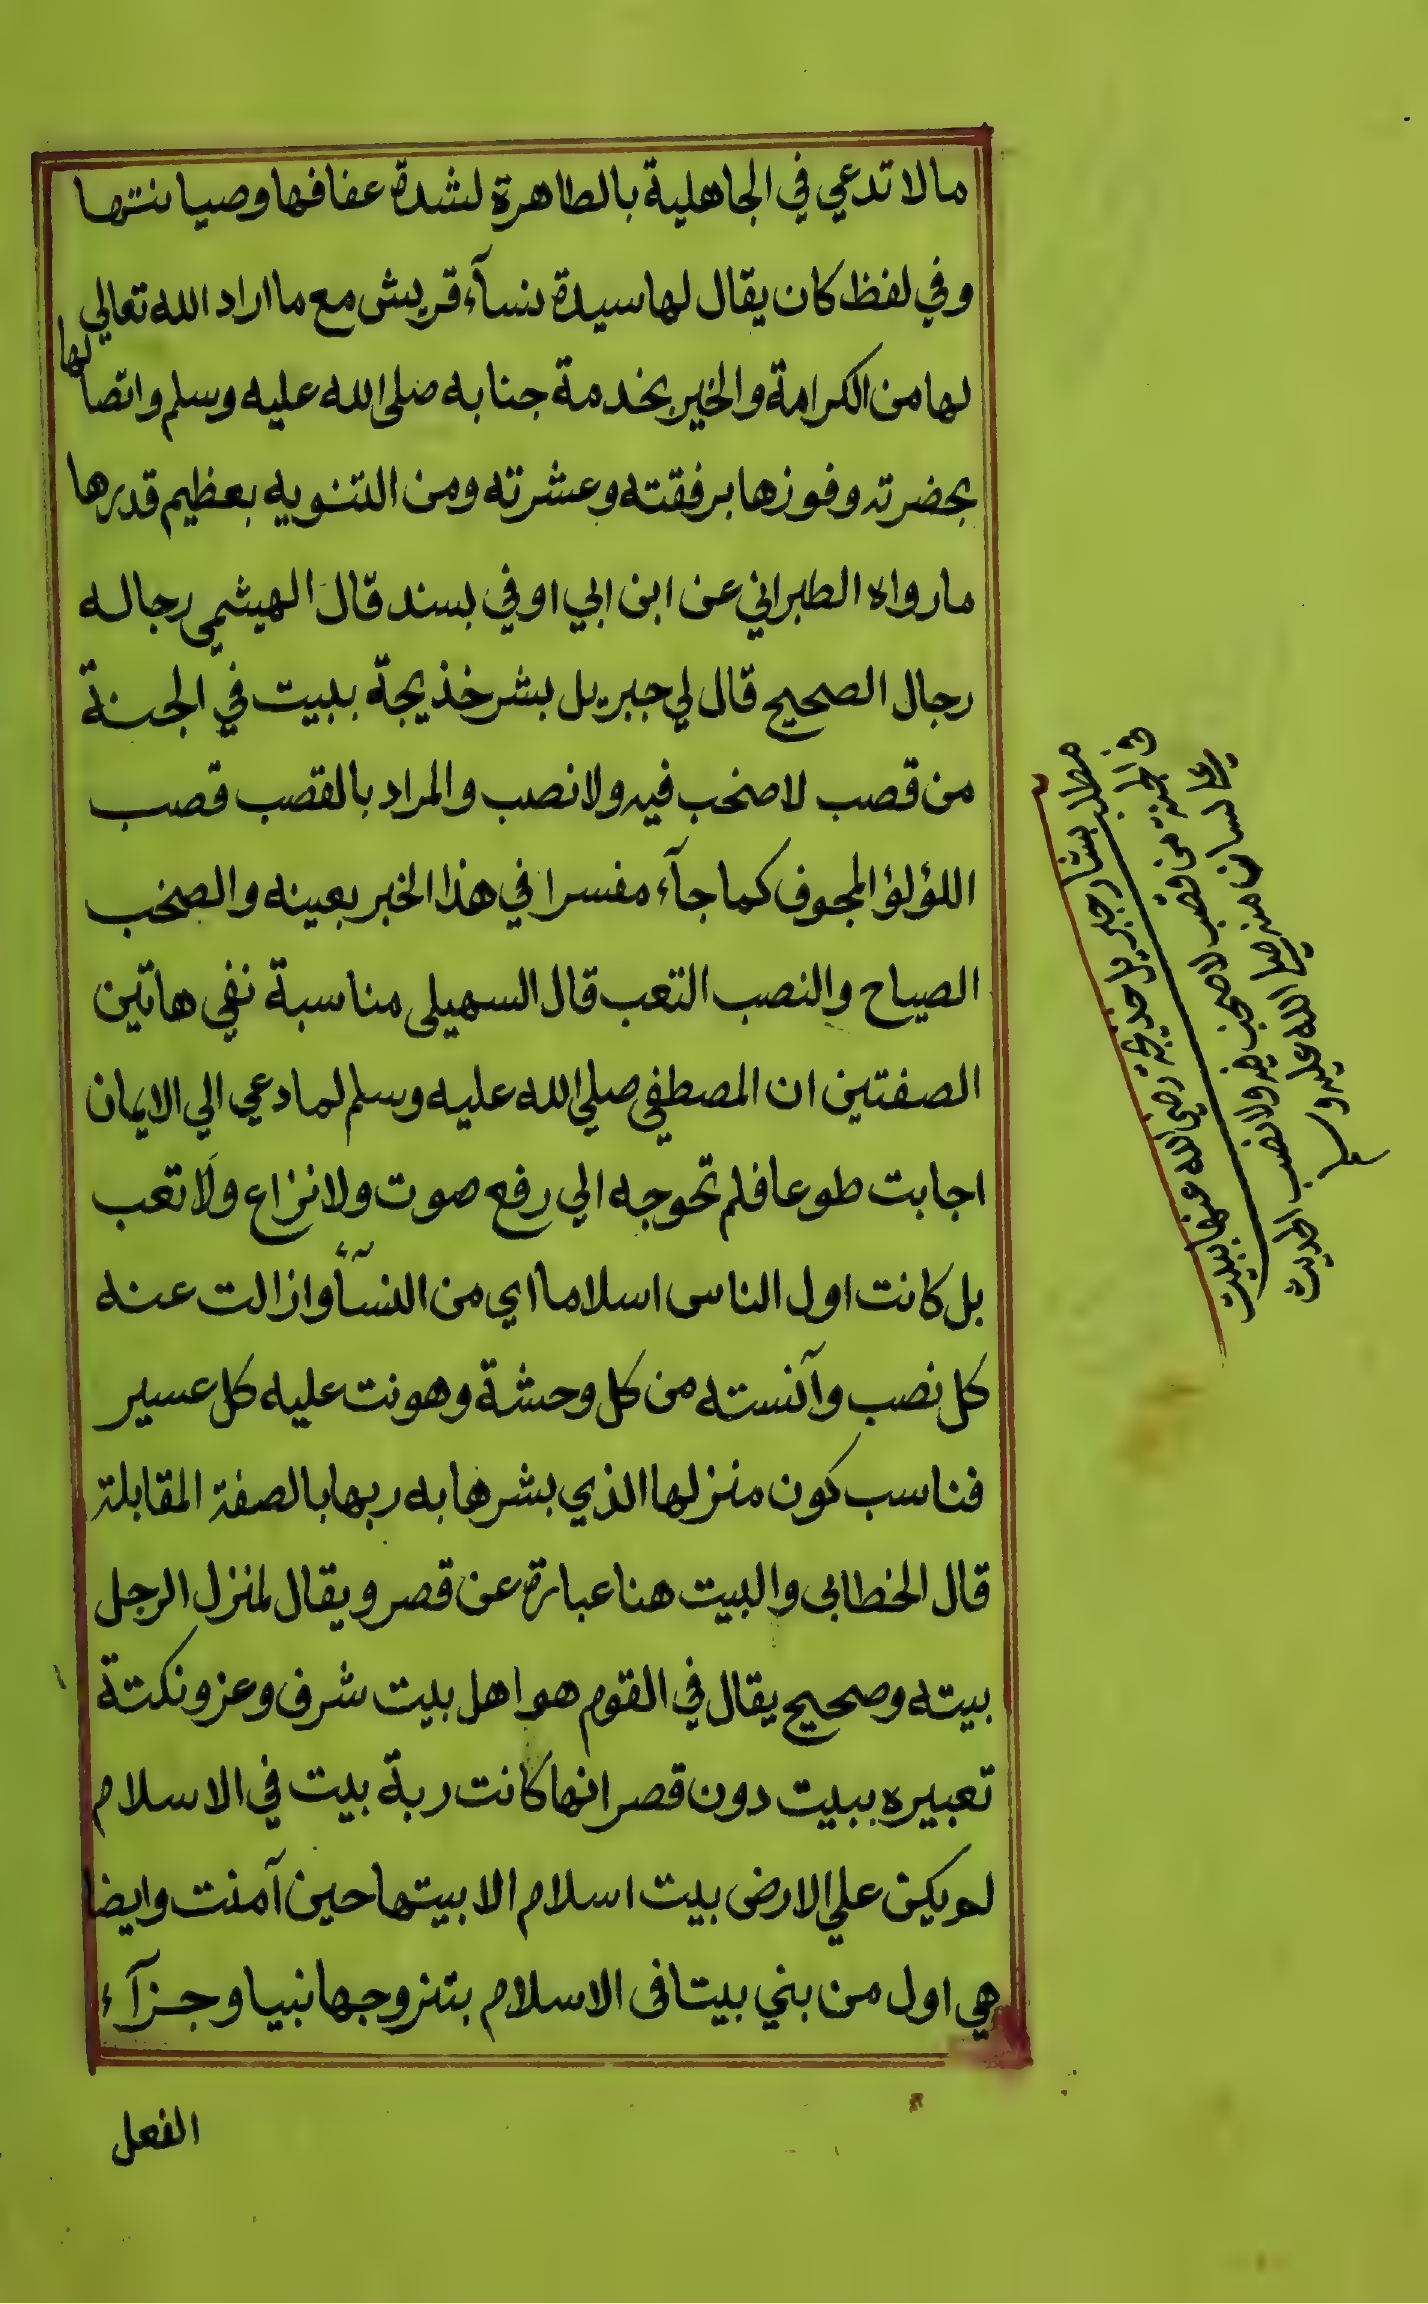 مالا تدعي في الجاهلية بالطاهرة لشدة عفافها وصيانتها
وفي لفظ كان يقال لها سيدة نسآء قريش مع ما اراد الله تعالي
لها من الكرامة والخير بخدمة جنابه صلى الله عليه وسلم واتصالها
بحضرته وفوزها برفقته وعشرته ومن التنويه بعظيم قدرها
ما رواه الطبراني عن ابن ابي اوفي بسند قال الهيثمي رجاله
رجال الصحيح قال لي جبريل بشر خذيجة ببيت في الجنة
من قصب لا صخب فيه ولا نصب والمراد بالقصب قصب
اللؤلؤ المجوف كما جآء مفسرا في هذا الخبر بعينه والصخب
الصياح والنصب التعب قال السهيلى مناسبة نفي هاتين
الصفتين ان المصطفي صلي الله عليه وسلم لما دعي الي الايمان
اجابت طوعا فلم تحوجه الي رفع صوت ولا نزاع ولا تعب
بل كانت اول الناس اسلاما اي من النسآء وازالت عنه
كل نصب وآنسته من كل وحشة وهونت عليه كل عسير
فناسب كون منزلها الذي بشرها به ربها بالصفة المقابلة
قال الخطابي والبيت هنا عبارة عن قصر ويقال لمنزل الرجل
بيته وصحيح يقال في القوم هو اهل بيت شرف وعز ونكتة
تعبيره ببيت دون قصر انها كانت ربة بيت في الاسلام
لم يكن علي الارض بيت اسلام الا بيتها حين آمنت وايضا
هي اول من بني بيتا فى الاسلام بتزوجها نبيا وجزآء
الفعل
مطلب بشار جبريل خذيجة رضي الله عنها ببيت
في الجنة من قصب لا صخب فيه ولا نصب الحديث
علي لسان منه صلي الله عليه وسلم